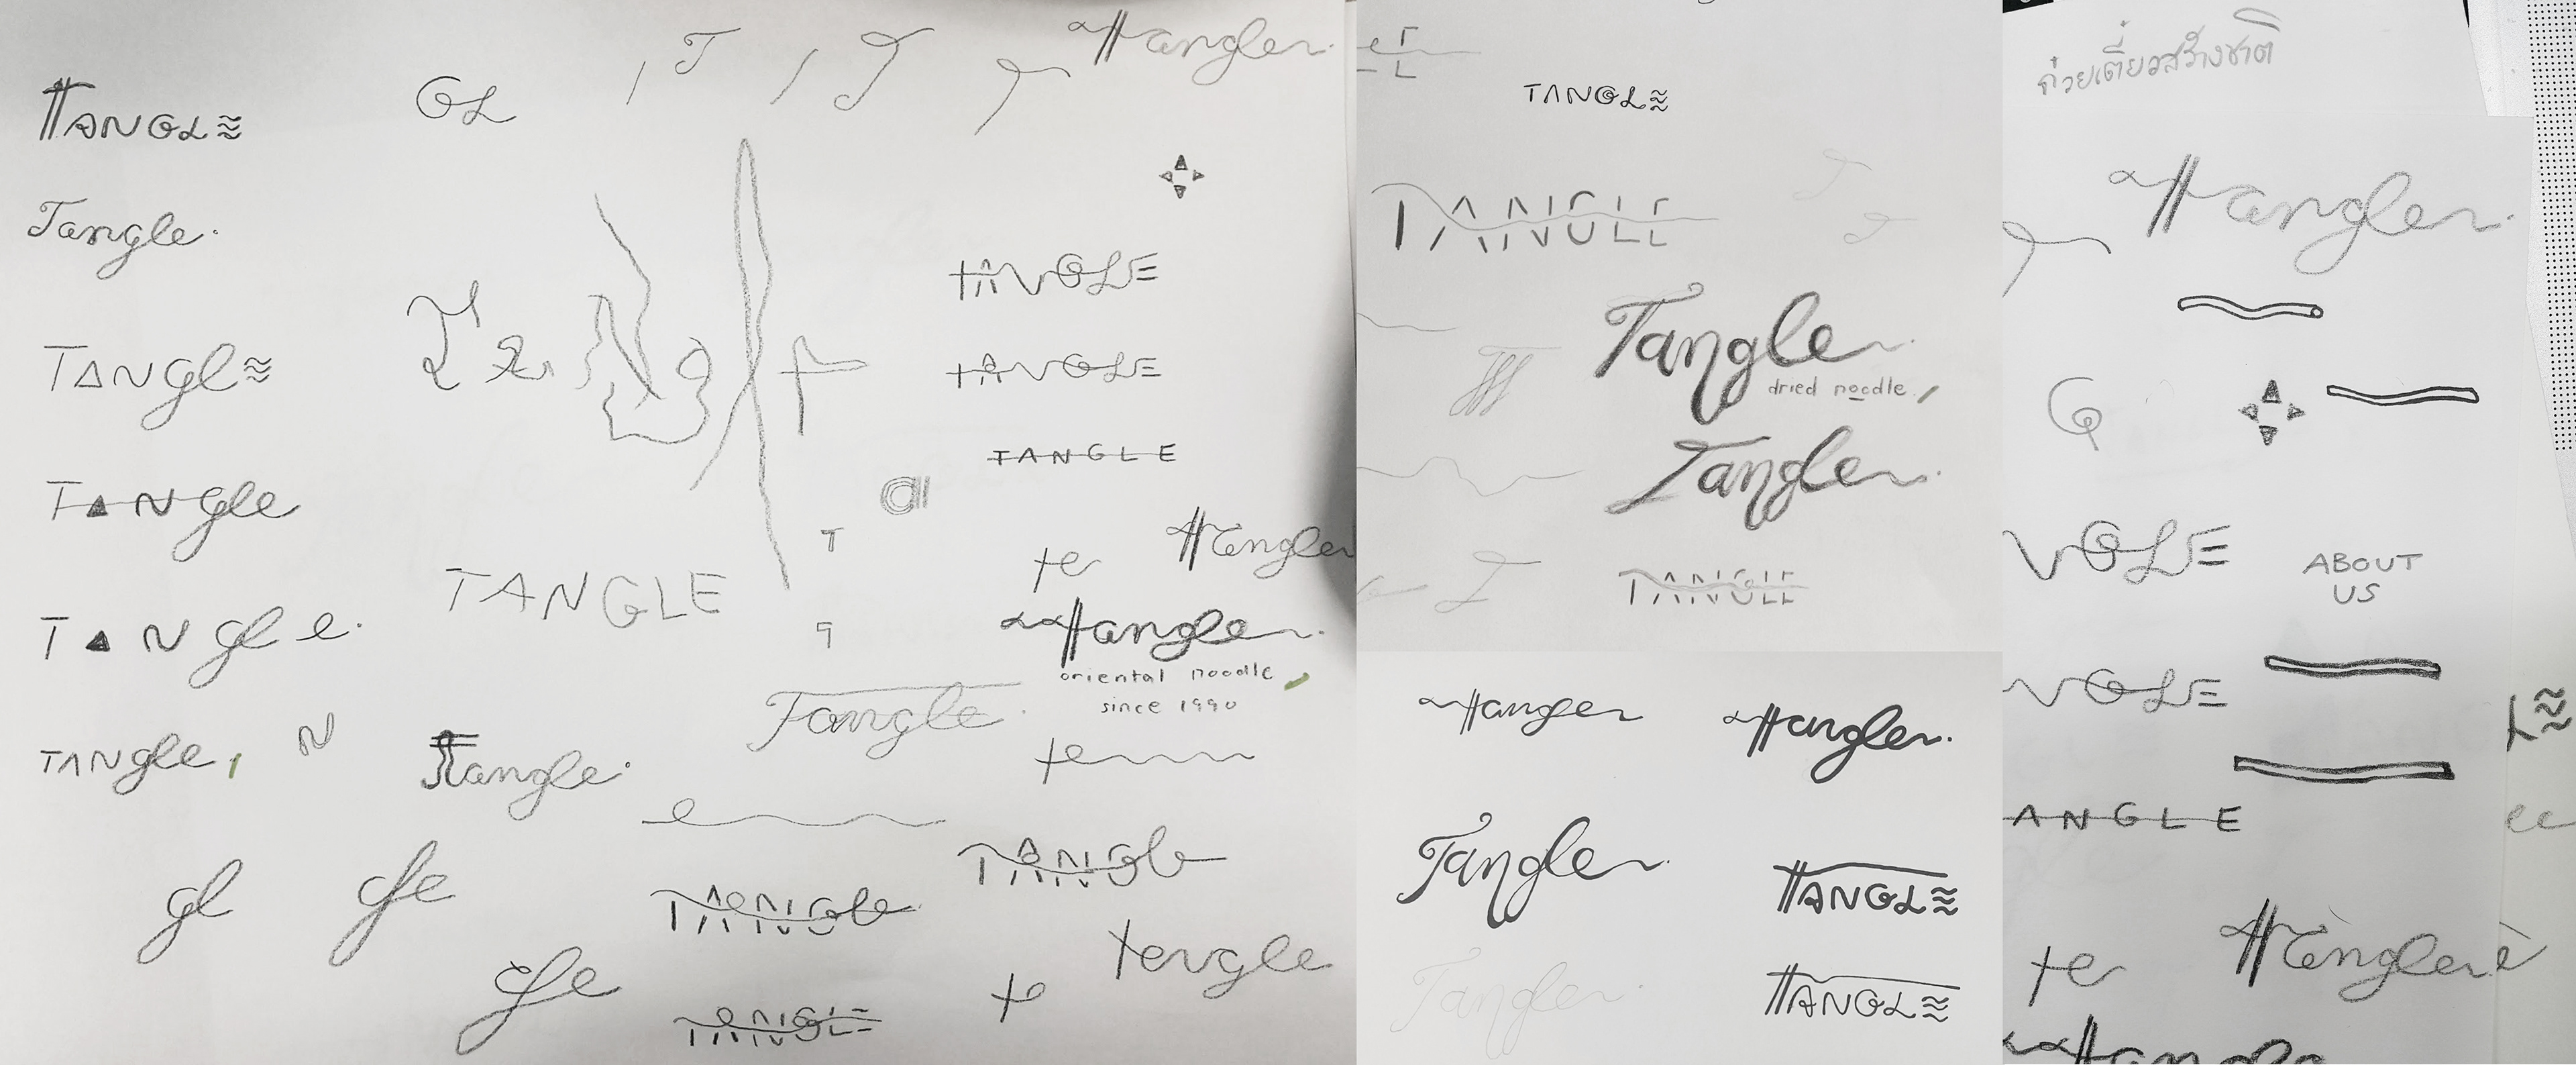 TANGLE
Tangle.
TANGLE
TANgle
TANgle.
TANgle,
N
gl
gle
gle
GL
TANGLE
Tangle.
Tangle.
TANGLE
TANGLE
T
T
Tangle
TANGLE
TANGLE
TANGLE
a
T
te
Tangle
Tangle.
oriental noodle
since 1990
te
TANGLE
te
tengle
TANGLE
TANGLE
Tangle.
dried noodle
Tangle.
TANGLE
Tangle
Tangle.
Tangle.
TANGLE
Tangle.
TANGLE
ก๋วยเตี๋ยวสร้างชาติ
Tangle.
G
ABOUT
US
ANGLE
te
Tangle